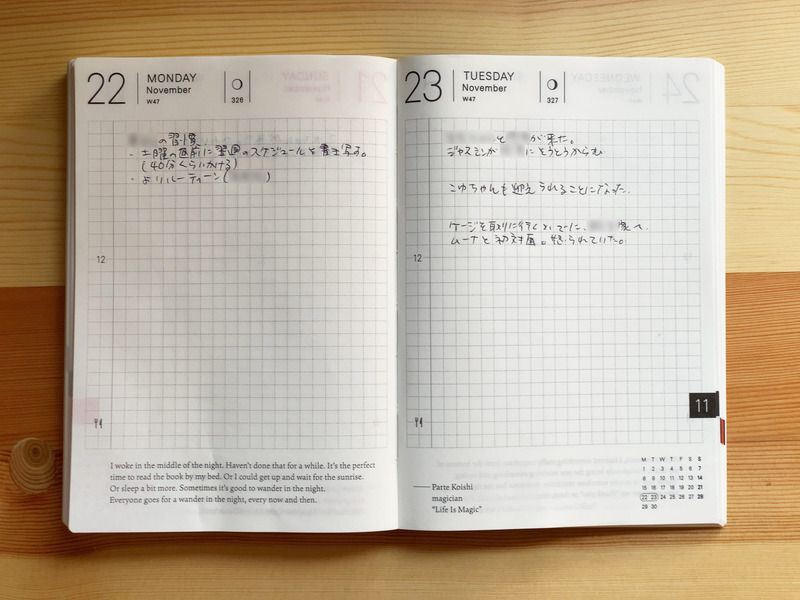 22
MONDAY
November
W47
326
の習慣
・土曜の昼前に翌週のスケジュールを書き写す。
(40分くらいかける)
・よいルーティーン( )
12
I woke in the middle of the night. Haven't done that for a while. It's the perfect
time to read the book by my bed. Or I could get up and wait for the sunrise.
Or sleep a bit more. Sometimes it's good to wander in the night.
Everyone goes for a wander in the night, every now and then.
23
TUESDAY
November
W47
327
と が来た。
ジャスミンが にとうとうからむ
こゆちゃんも迎えられることになった。
ケージを取りに行くついでに、 家へ。
ムーナと初対面。怒られていた。
12
11
Parte Koishi
magician
"Life Is Magic"
M T W T F S S
1 2 3 4 5 6 7
8 9 10 11 12 13 14
15 16 17 18 19 20 21
22 23 24 25 26 27 28
29 30